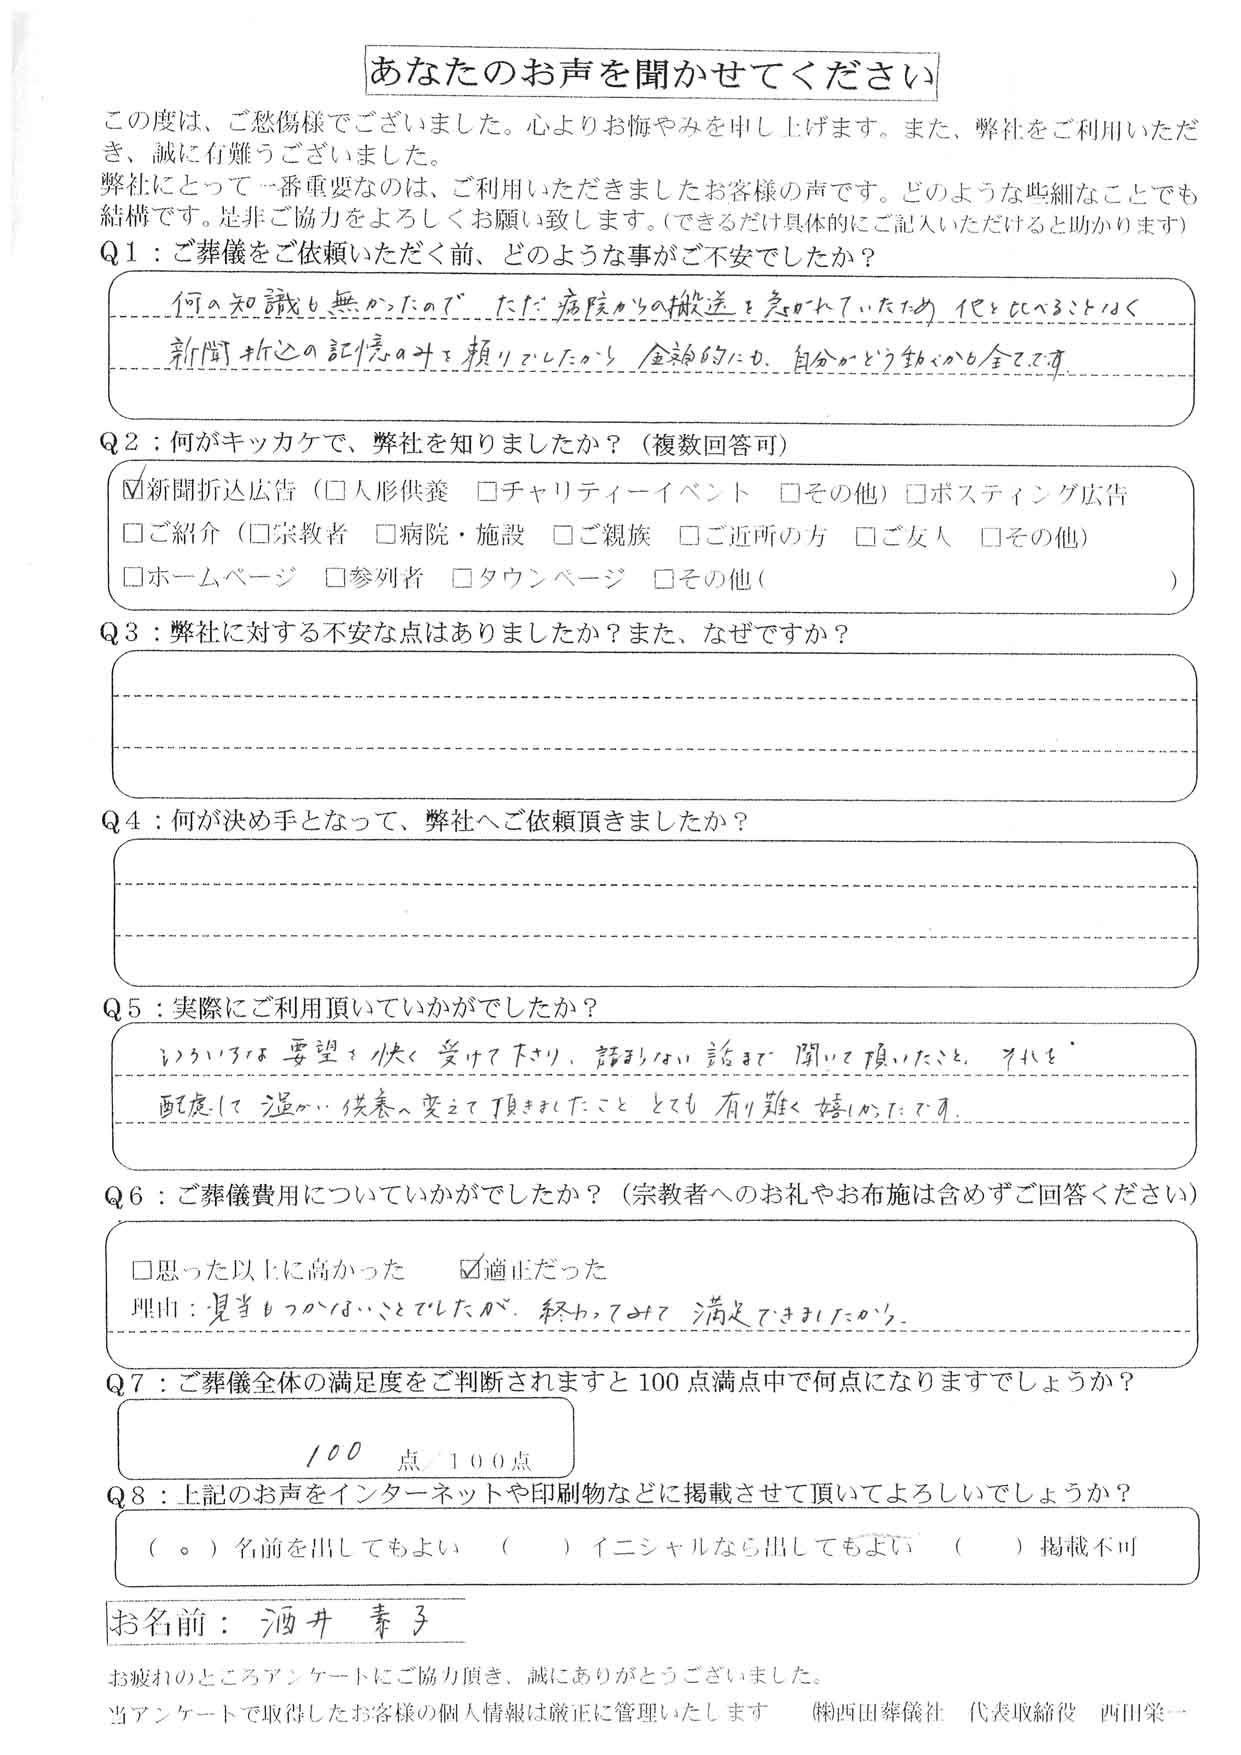 あなたのお声を聞かせてください
この度は、ご愁傷様でございました。心よりお悔やみを申し上げます。また、弊社をご利用いただ
き、誠に有難うございました。
弊社にとって一番重要なのは、ご利用いただきましたお客様の声です。どのような些細なことでも
結構です。是非ご協力をよろしくお願い致します。（できるだけ具体的にご記入いただけると助かります）
Q1：ご葬儀をご依頼いただく前、どのような事がご不安でしたか？
何の知識も無かったので ただ病院からの搬送を急がれていたため 他と比べることなく
新聞折込の記憶のみを頼りでしたから 金額的にも、自分がどう動くかも全てです。
Q2：何がキッカケで、弊社を知りましたか？（複数回答可）
☑新聞折込広告（□人形供養 □チャリティーイベント □その他）□ポスティング広告
□ご紹介（□宗教者 □病院・施設 □ご親族 □ご近所の方 □ご友人 □その他）
□ホームページ □参列者 □タウンページ □その他（ ）
Q3：弊社に対する不安な点はありましたか？また、なぜですか？
Q4：何が決め手となって、弊社へご依頼頂きましたか？
Q5：実際にご利用頂いていかがでしたか？
いろいろな要望を快く受けて下さり、詰まらない話まで聞いて頂いたこと、それを
配慮して温かい供養へ変えて頂きましたこと とても有り難く嬉しかったです。
Q6：ご葬儀費用についていかがでしたか？（宗教者へのお礼やお布施は含めずご回答ください）
□思った以上に高かった ☑適正だった
理由：見当もつかないことでしたが、終わってみて満足できましたから。
Q7：ご葬儀全体の満足度をご判断されますと100点満点中で何点になりますでしょうか？
100 点／100点
Q8：上記のお声をインターネットや印刷物などに掲載させて頂いてよろしいでしょうか？
（ ○ ）名前を出してもよい （ ）イニシャルなら出してもよい （ ）掲載不可
お名前： 酒井 素子
お疲れのところアンケートにご協力頂き、誠にありがとうございました。
当アンケートで取得したお客様の個人情報は厳正に管理いたします ㈱西田葬儀社 代表取締役 西田栄一